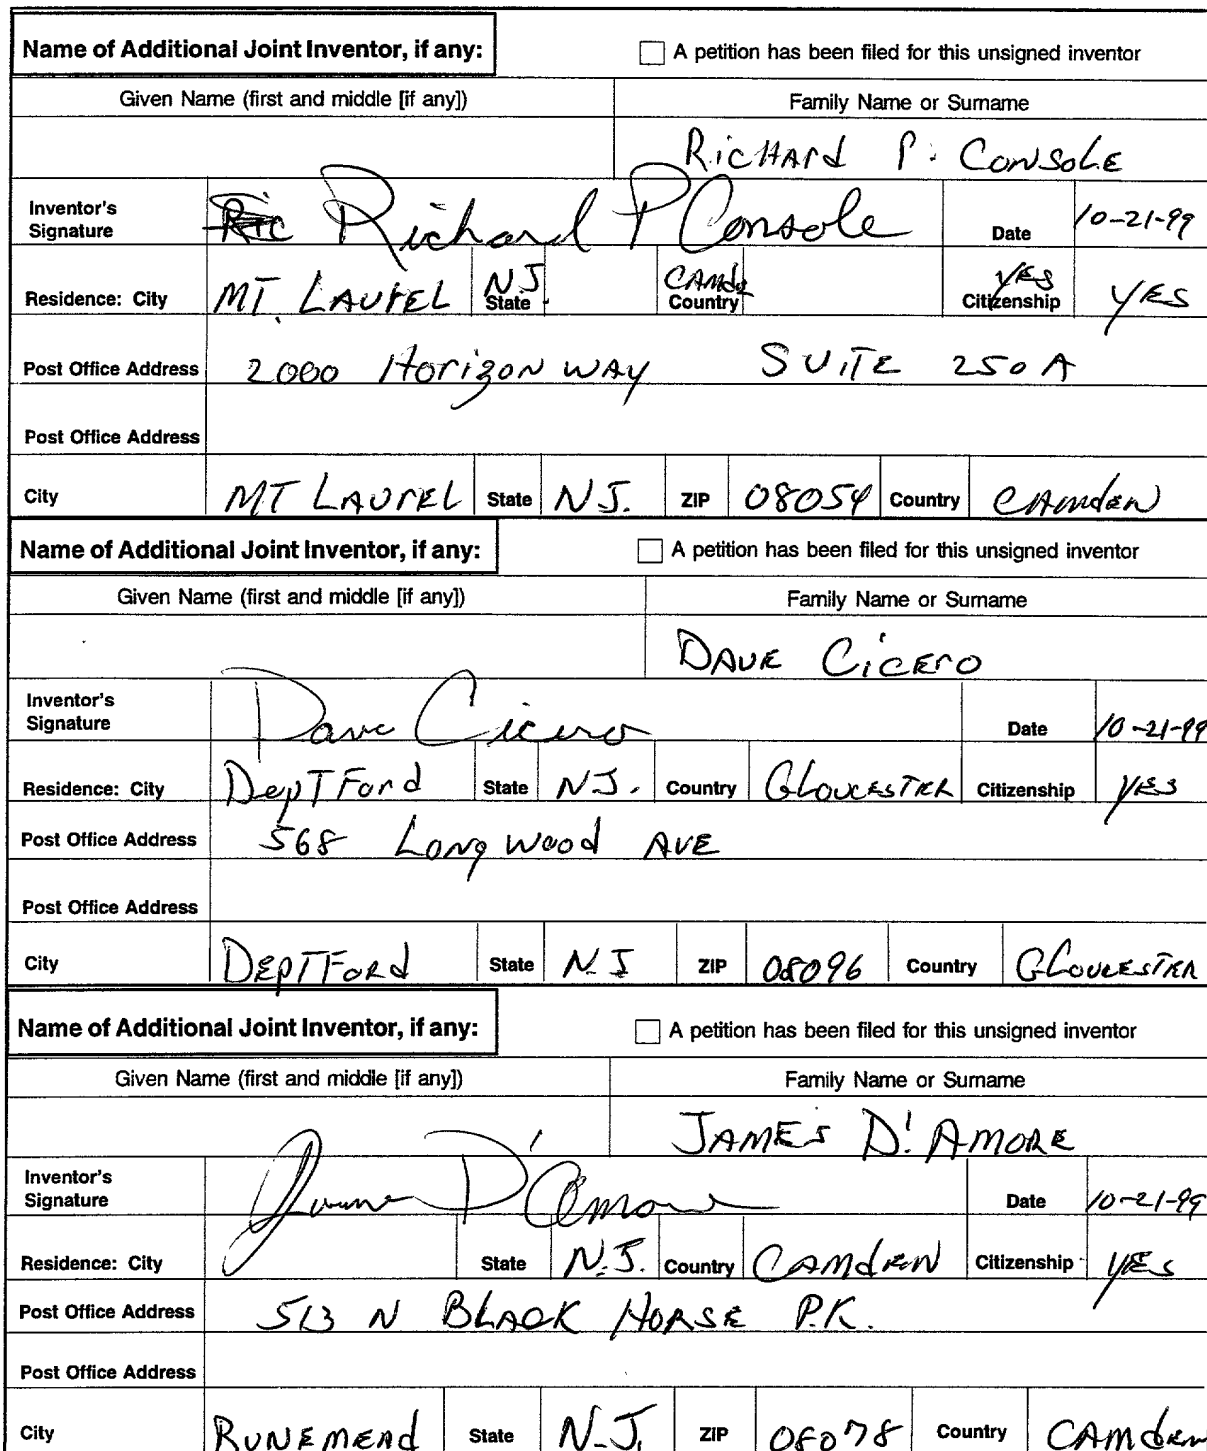 Name of Additional Joint Inventor, if any: ☐ A petition has been filed for this unsigned inventor
Given Name (first and middle [if any]) Family Name or Surname
RICHARD P. CONSOLE
Inventor's Signature Ric Richard P Console Date 10-21-99
Residence: City MT. LAUREL State N.J. Country CAMD. Citizenship YES YES
Post Office Address 2000 Horizon WAY SUITE 250A
Post Office Address
City MT LAUREL State NJ. ZIP 08054 Country CAMDEN
Name of Additional Joint Inventor, if any: ☐ A petition has been filed for this unsigned inventor
Given Name (first and middle [if any]) Family Name or Surname
DAVE CICERO
Inventor's Signature Dave Cicero Date 10-21-99
Residence: City DepTFord State NJ. Country GLOUCESTER Citizenship YES
Post Office Address 568 Longwood AVE
Post Office Address
City DEPTFORD State N.J ZIP 08096 Country GLOUCESTER
Name of Additional Joint Inventor, if any: ☐ A petition has been filed for this unsigned inventor
Given Name (first and middle [if any]) Family Name or Surname
JAMES D'AMORE
Inventor's Signature James D'Amore Date 10-21-99
Residence: City State N.J. Country CAMDEN Citizenship YES
Post Office Address 513 N BLACK HORSE P.K.
Post Office Address
City RUNEMEAD State N.J. ZIP 08078 Country CAMDEN